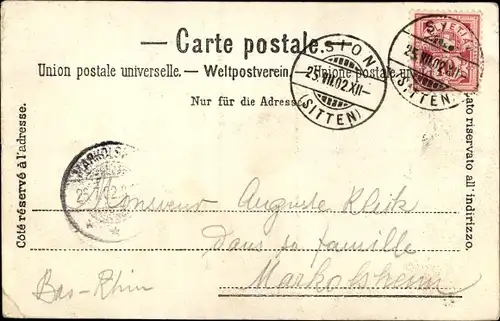 — Carte postale.
Union postale universelle. — Weltpostverein. — Unione postale
Nur für die Adresse
SION
25.VII.02.XII—
(SITTEN)
25.VII.02.XII
(SITTEN)
Côté réservé à l'adresse.
riservato all'indirizzo.
Monsieur Auguste Klitz
dans sa famille
Markolsheim
Bas-Rhin